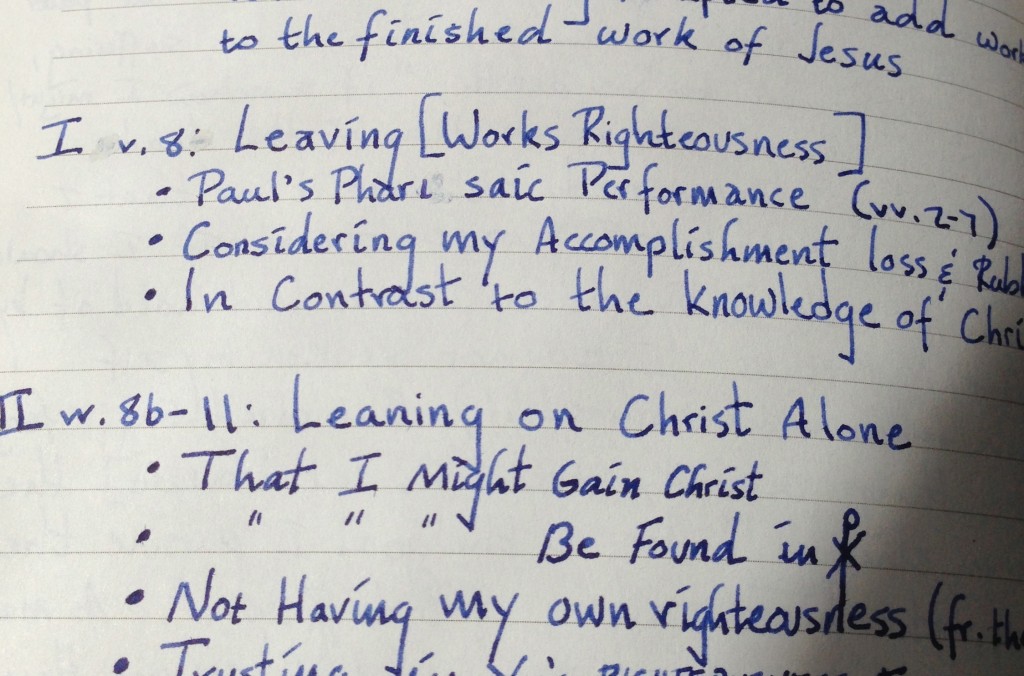 to add
to the finished work of Jesus
I v. 8: Leaving [Works Righteousness]
• Paul's Pharisaic Performance (vv. 2-7)
• Considering my Accomplishment loss &
• In Contrast to the knowledge of
II vv. 8b-11: Leaning on Christ Alone
• That I Might Gain Christ
• " " " Be Found in ☧
• Not Having my own righteousness (fr.
• Trusting in